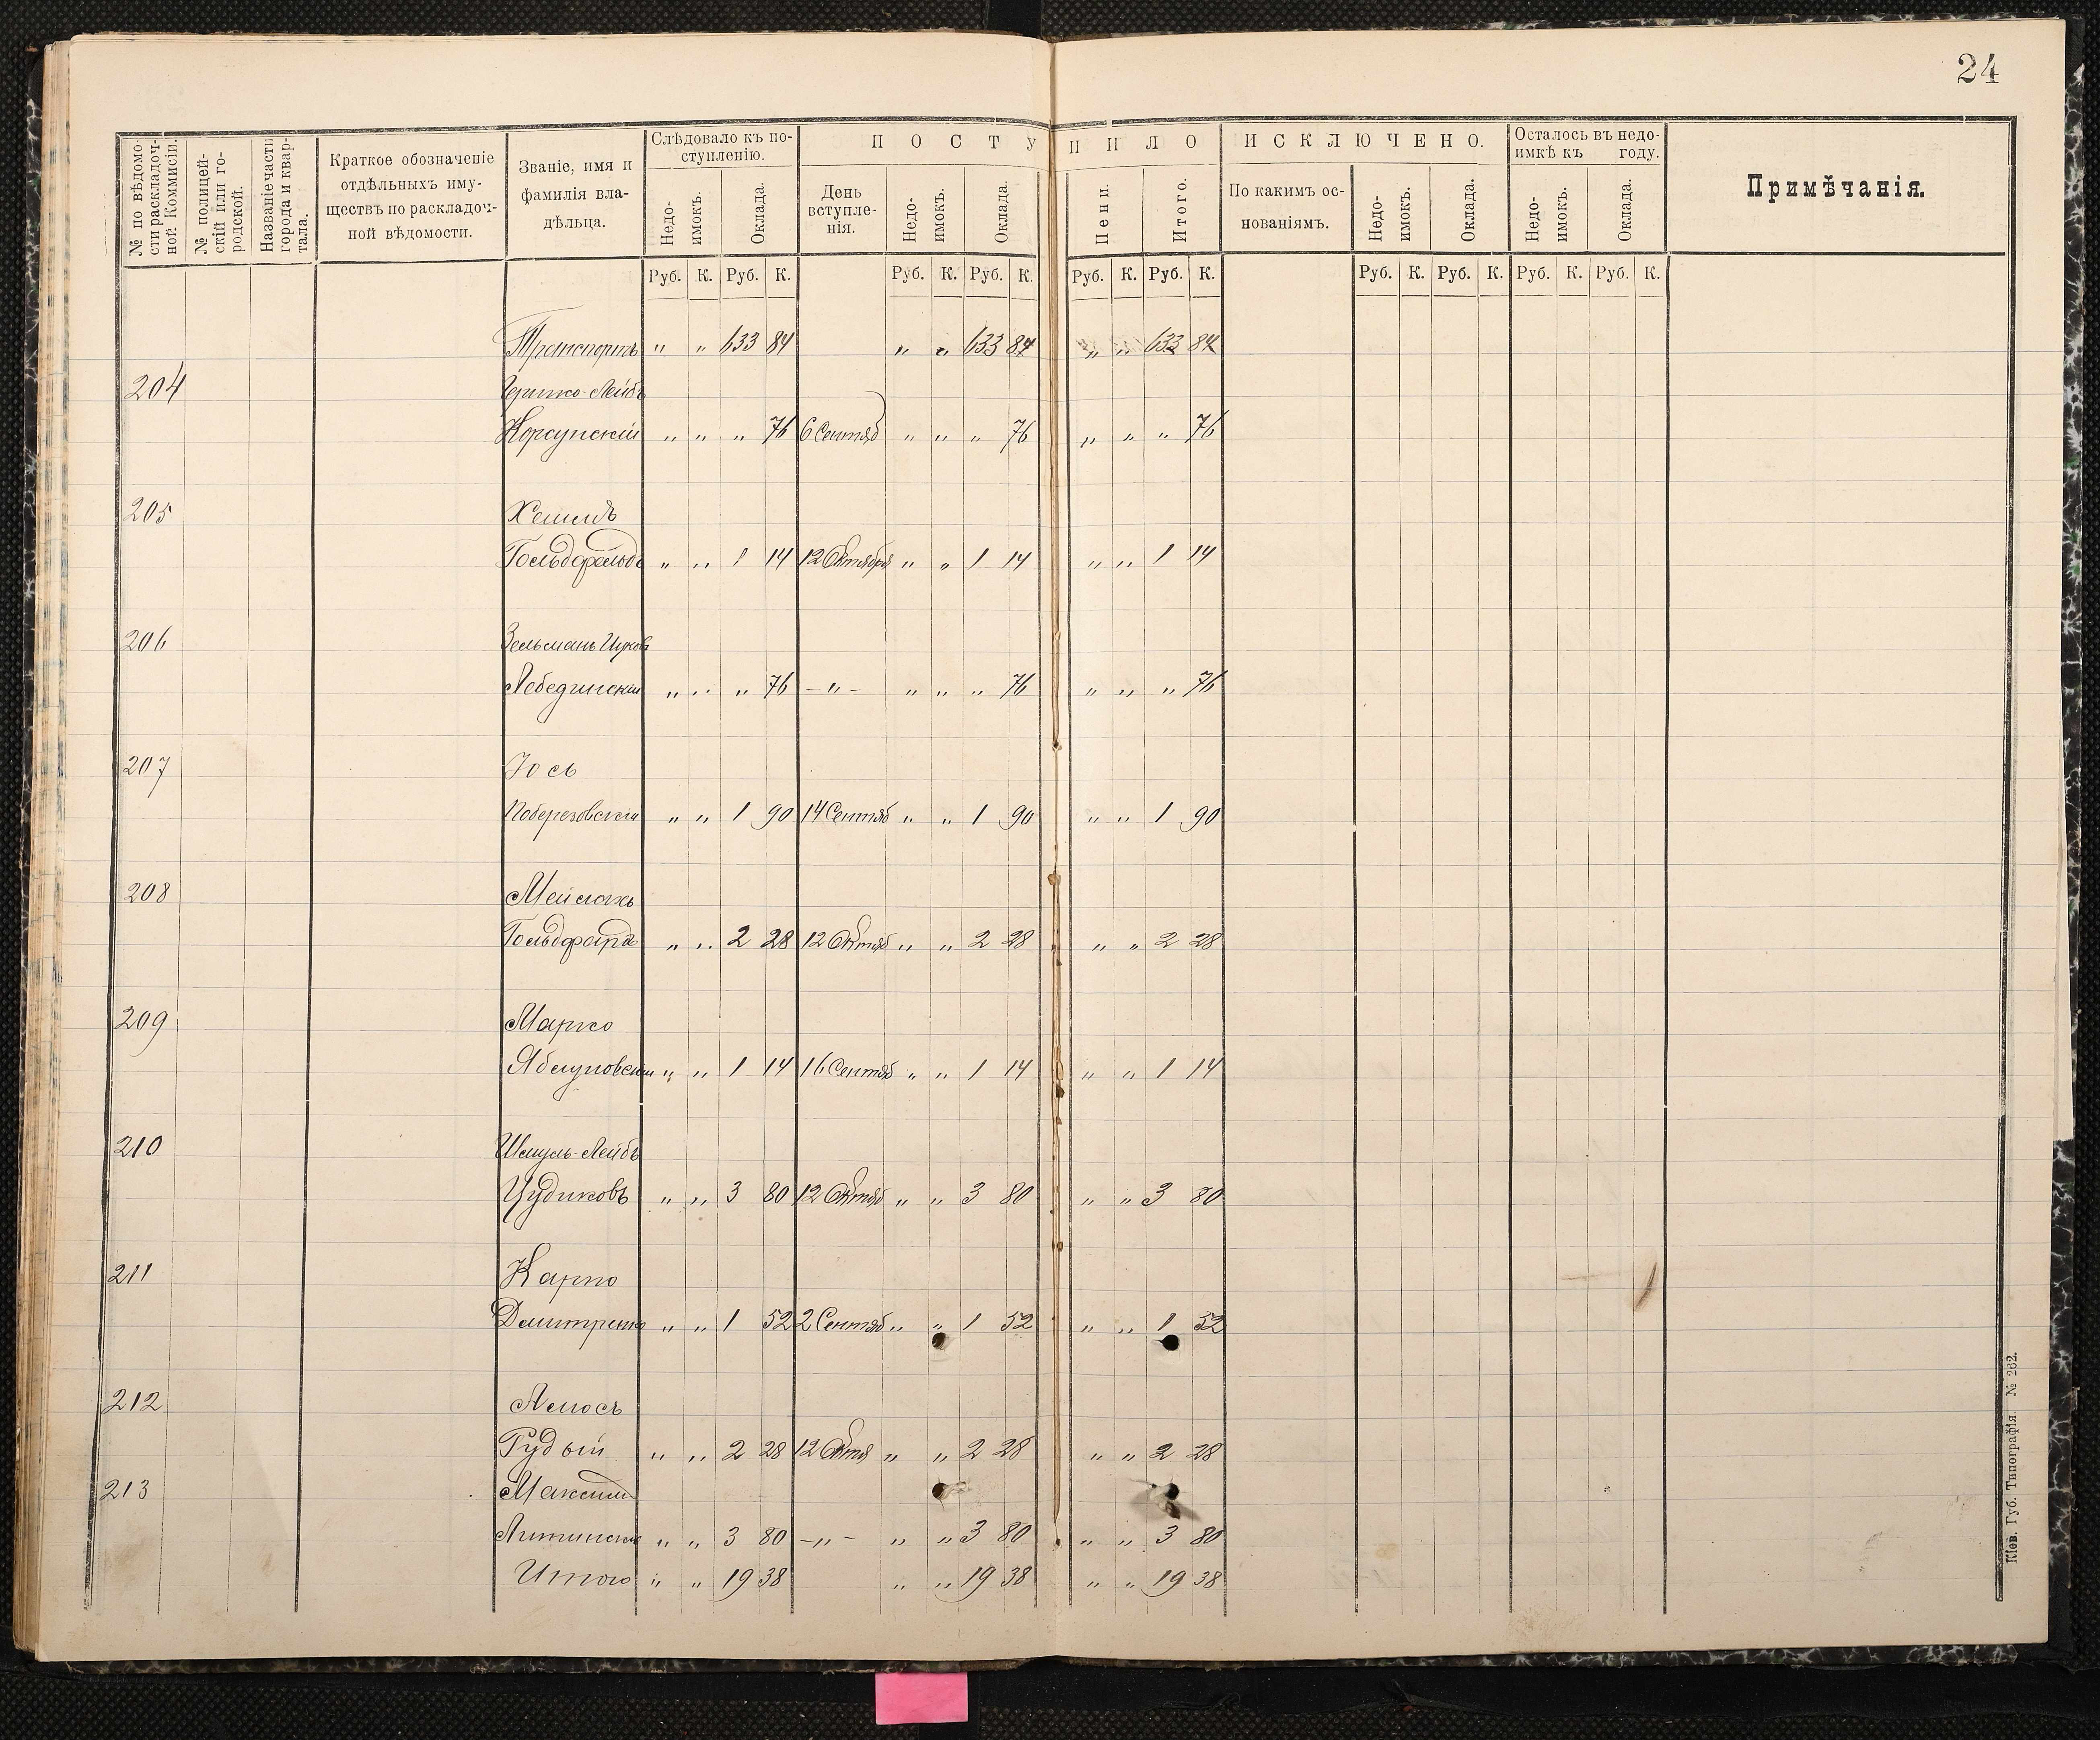 24
№ по вѣдомости раскладочной Коммисіи.
№ полицейскій или городской.
Названіе части города и квартала.
Краткое обозначеніе отдѣльныхъ имуществъ по раскладочной вѣдомости.
Званіе, имя и фамилія владѣльца.
Слѣдовало къ поступленію.
Недоимокъ. Оклада.
ПОСТУПИЛО
День вступленія. Недоимокъ. Оклада. Пени. Итого.
ИСКЛЮЧЕНО.
По какимъ основаніямъ. Недоимокъ. Оклада.
Осталось въ недоимкѣ къ году.
Недоимокъ. Оклада.
Примѣчанія.
Руб. К. Руб. К. Руб. К. Руб. К. Руб. К. Руб. К. Руб. К. Руб. К. Руб. К. Руб. К.
Транспортъ „ „ 633 84 „ „ 633 84 „ „ 633 84
204 -Лейбъ
Корсунскій „ „ „ 76 6 Сентяб „ „ „ 76 „ „ „ 76
205
Гольдфельдъ „ „ 1 14 12 Октября „ „ 1 14 „ „ 1 14
206 Зельманъ
Лебединскій „ „ „ 76 – „ – „ „ „ 76 „ „ „ 76
207 Іось
Поберезовскій „ „ 1 90 14 Сентяб „ „ 1 90 „ „ 1 90
208 Мейлахъ
Гольдфарбъ „ „ 2 28 12 Октяб „ „ 2 28 „ „ 2 28
209 Марко
Яблуновскій „ „ 1 14 16 Сентяб „ „ 1 14 „ „ 1 14
210 Шмуль-Лейбъ
Цудиковъ „ „ 3 80 12 Октяб „ „ 3 80 „ „ 3 80
211 Карпо
Дмитренко „ „ 1 52 2 Сентяб „ „ 1 52 „ „ 1 52
212 Амосъ
Рудый „ „ 2 28 12 Октя „ „ 2 28 „ „ 2 28
213 Максимъ
„ „ 3 80 – „ – „ „ 3 80 „ „ 3 80
Итого „ „ 19 38 „ „ 19 38 „ „ 19 38
Кіев. Губ. Типографія. № 262.